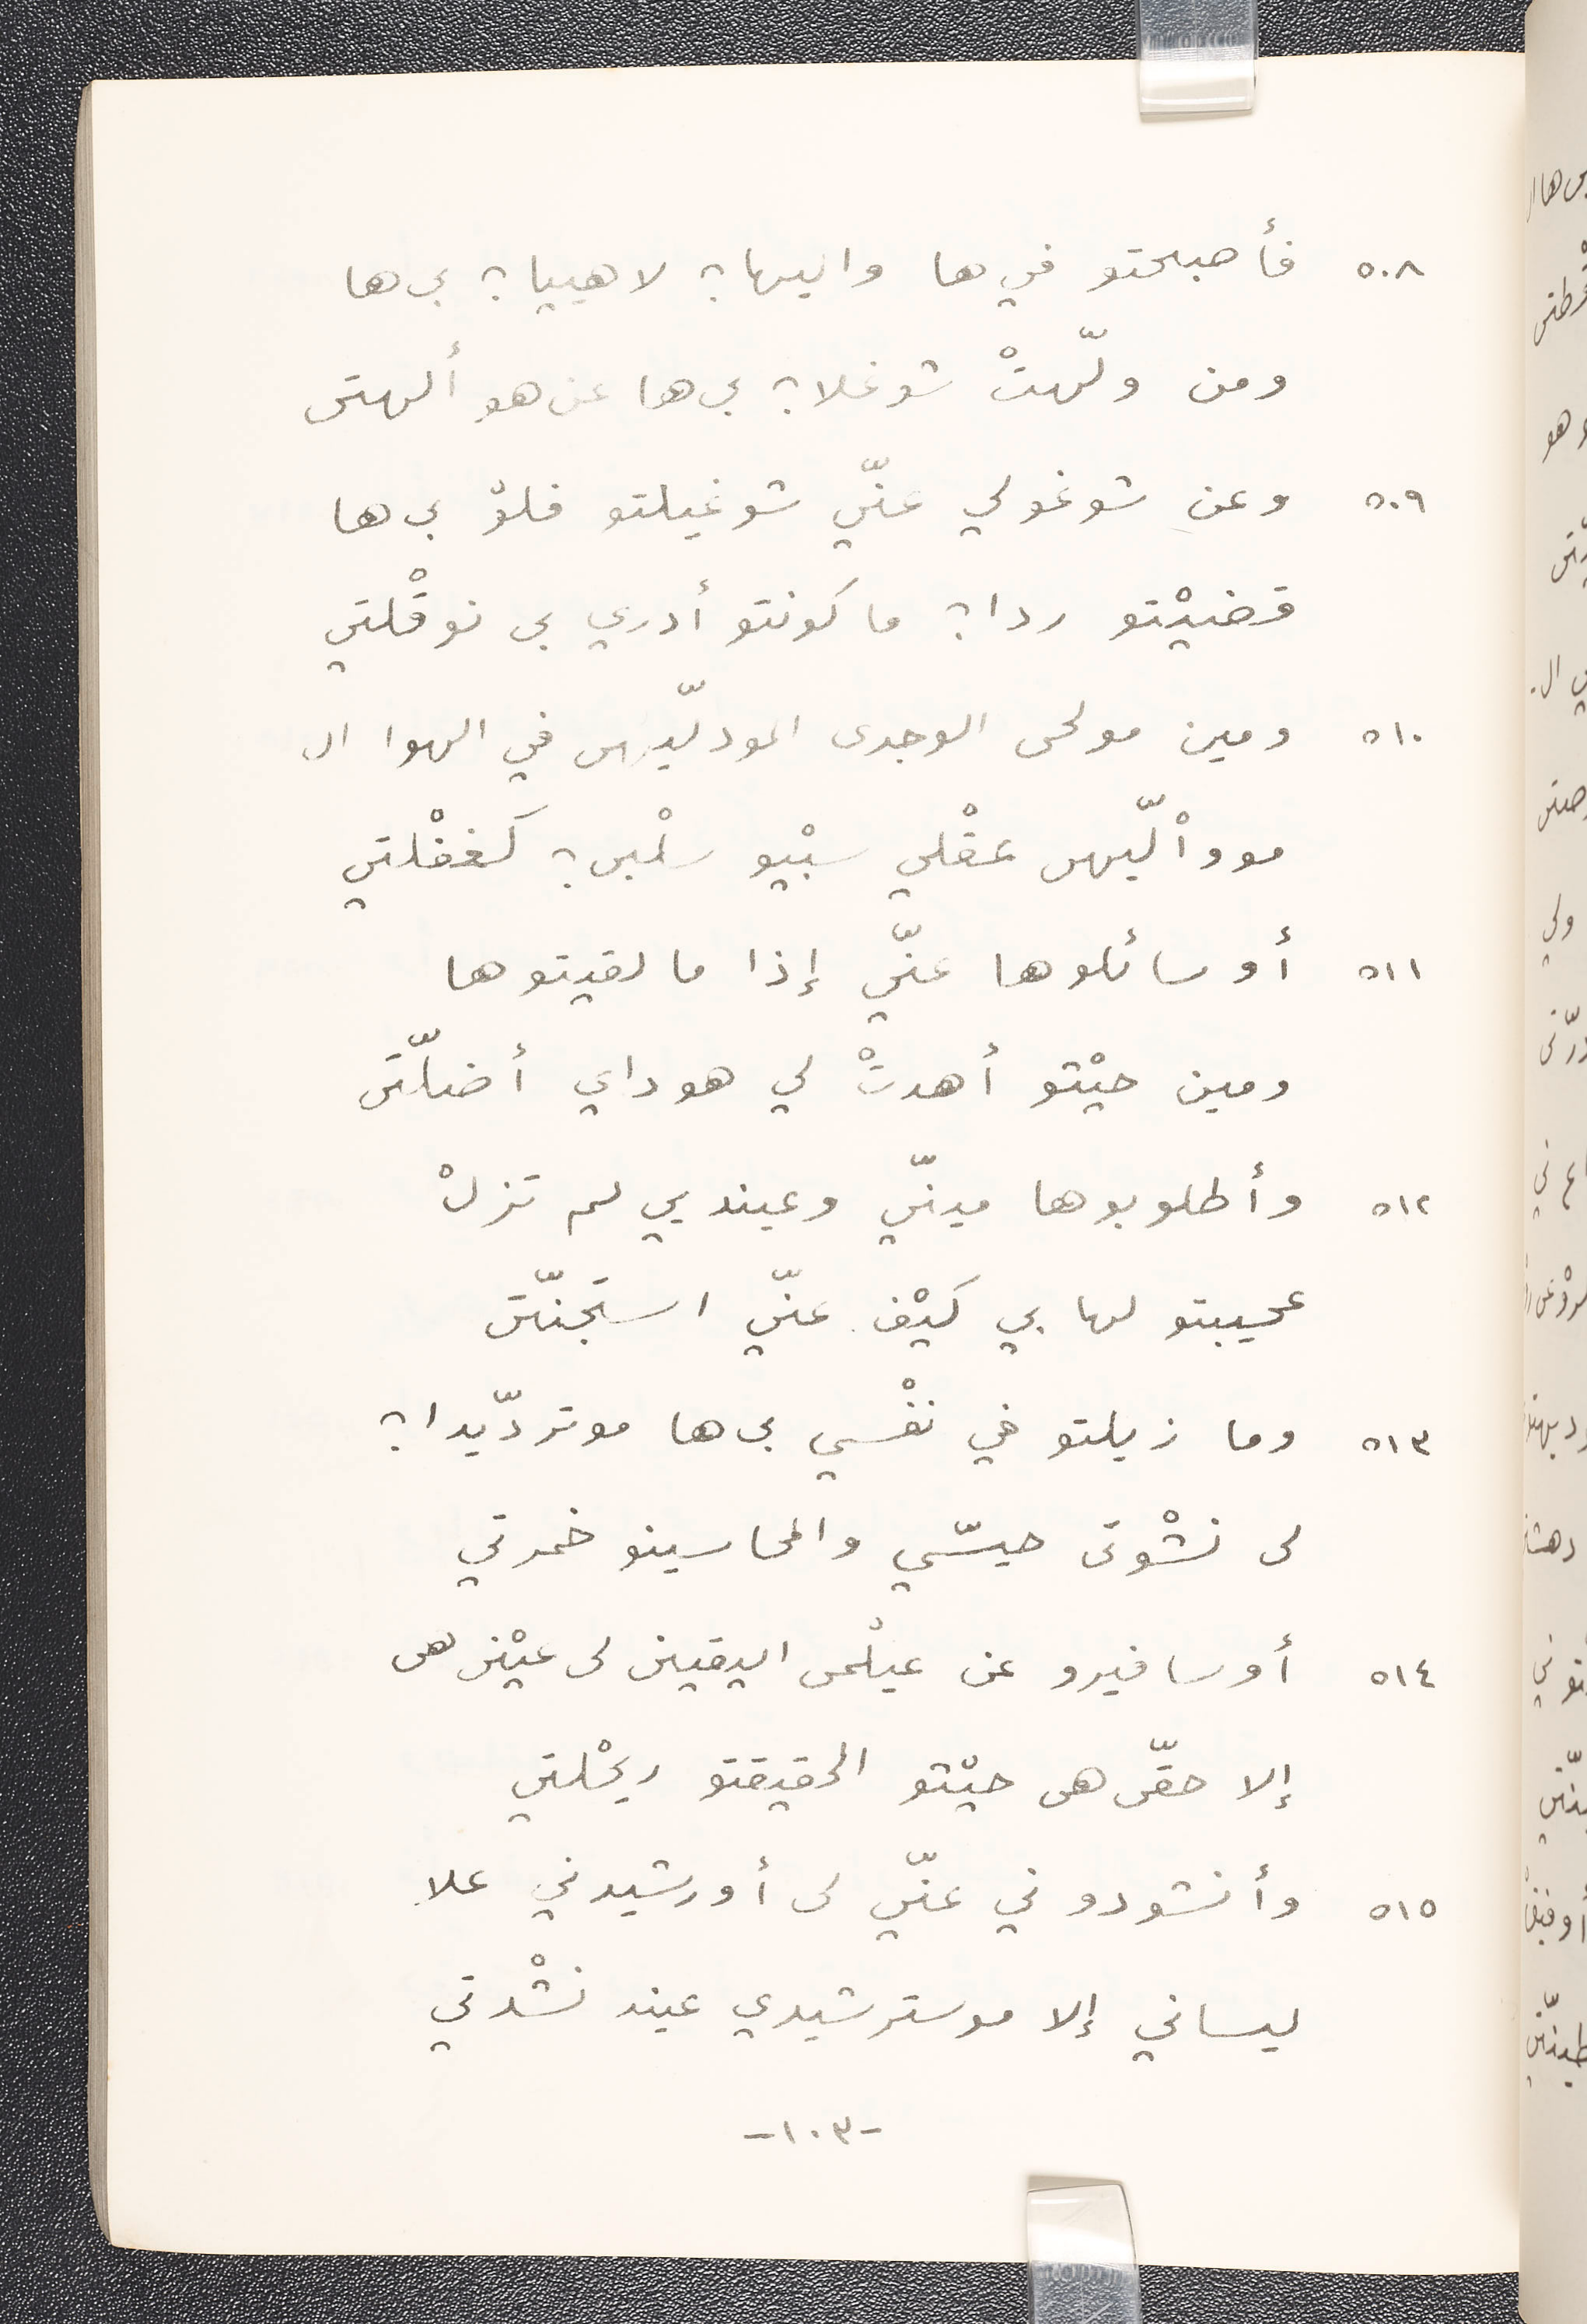 ٥٠٨ فأصبحتو في ها واليها؟ لاهييا؟ بى ها
ومن ولّهتْ شوغلا؟ بى ها عن هو ألهتى
٥٠٩ وعن شوغولي عنّي شوغيلتو فلوْ بى ها
قضيْتو ردا؟ ما كونتو أدري بى نوقْلتي
٥١٠ ومين مولحى الوجدى المودلّيهى في الهوا ال
مووألّيهى عقْلي سبْيو سلْبى؟ كغفْلتي
٥١١ أوسائلوها عنّي إذا ما لقيتوها
ومين حيْتو أهدتْ لي هوداي أضلّتى
٥١٢ وأطلوبوها مينّي وعينديي لم تزلْ
عجيبتو لها بي كيْف عنّي استجنّتى
٥١٣ وما زيلتو في نفْسي بى ها موتردّيدا؟
لى نشْوتى حيسّي والمحاسينو خمرتي
٥١٤ أوسافيرو عن عيلْمى اليقين لى عيْنى هى
إلا حقّى هى حيْتو الحقيقتو ريحْلتي
٥١٥ وأنشودوني عنّي لى أورشيدني علا
ليساني إلا موسترشيدي عيند نشْدتي
-١٠٣-